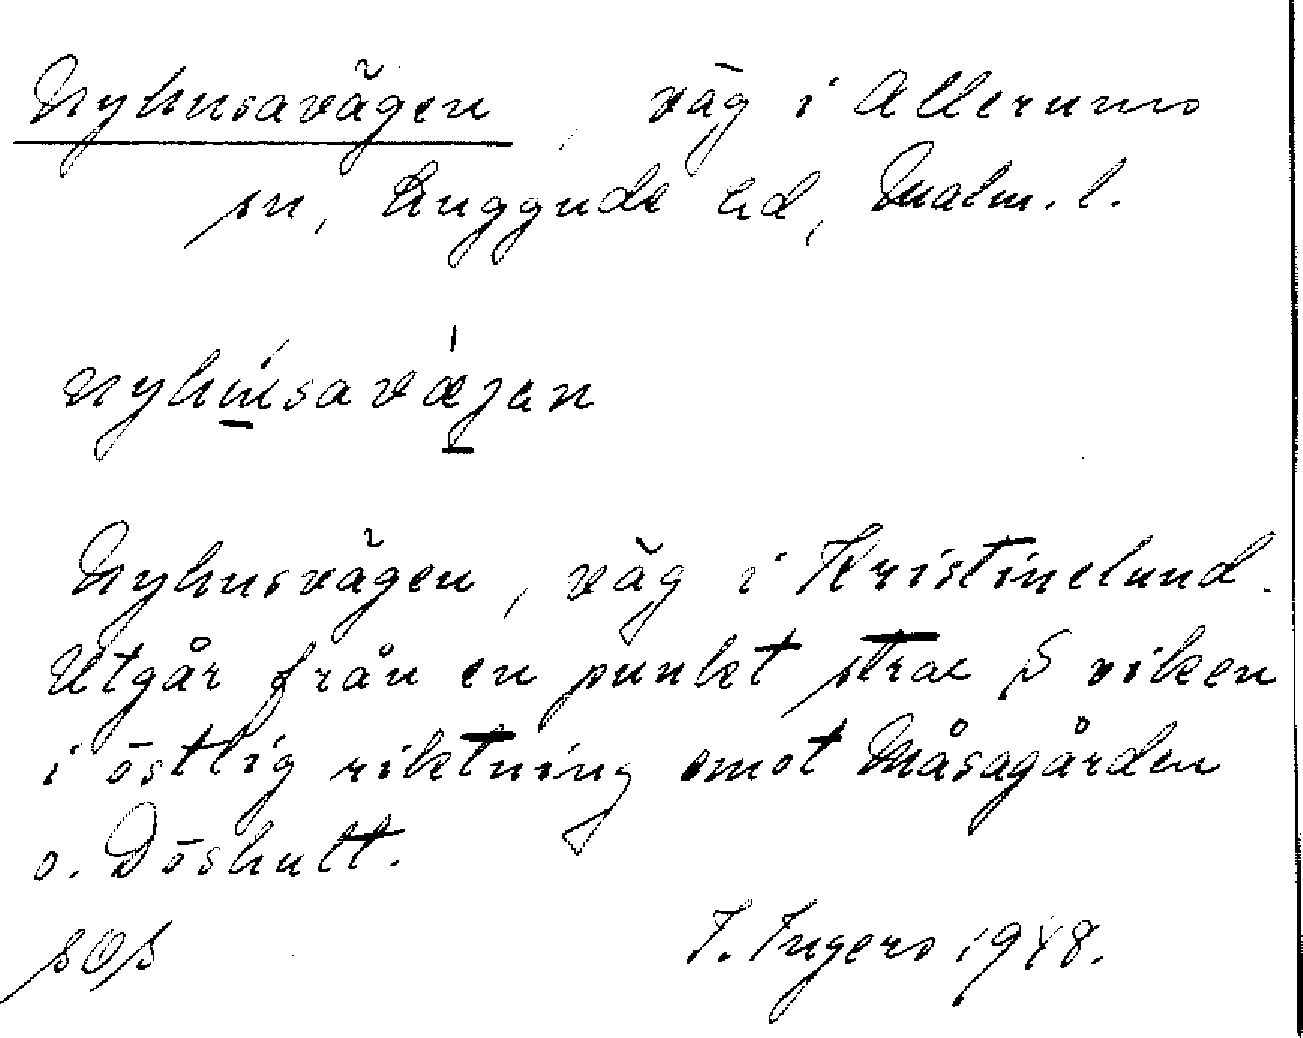 Nyhusavägen, väg i Allerums
sn, Luggude hd, Malm. l.
nyhúsavǽjen
Nyhusvägen, väg i Kristinelund.
Utgår från en punkt strax S viken
i östlig riktning emot Måsagården
o. Döshult.
I. Ingers 1948.